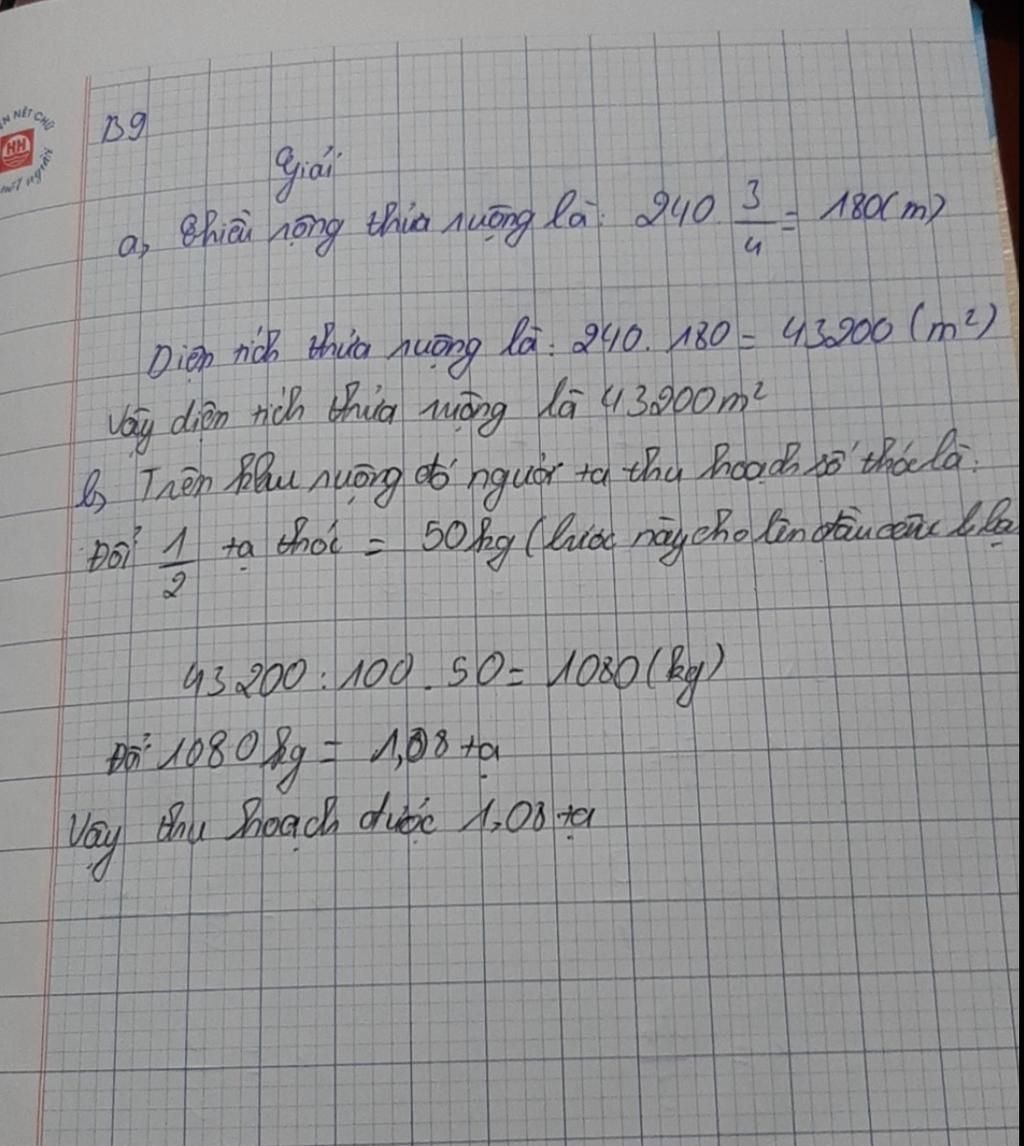 N NÉT CHỮ
HH
nết người
B9
Giải
a, Chiều rộng thửa ruộng là: 240. 3/4 = 180(m)
Diện tích thửa ruộng là: 240. 180 = 43200 (m²)
Vậy diện tích thửa ruộng là 43200m²
b, Trên khu ruộng đó người ta thu hoạch số thóc là:
Đổi 1/2 tạ thóc = 50kg (bước này cho lên đầu câu b
43200 : 100 . 50 = 1080 (kg)
Đổi 1080kg = 1,08 tạ
Vậy thu hoạch được 1,08 tạ